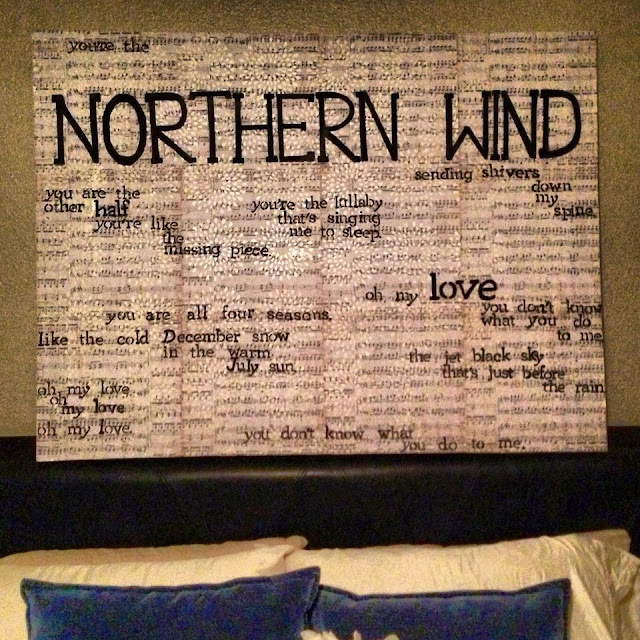 you're the
NORTHERN WIND
sending shivers
down
my
spine.
you are the
other half
you're like
the
missing piece.
you're the lullaby
that's singing
me to sleep.
oh my love
you don't know
what you do
to me
you are all four seasons.
like the cold December snow
in the warm
July sun.
the jet black sky
that's just before
the rain
oh my love
oh
my love
oh my love.
you don't know what
you do to me.